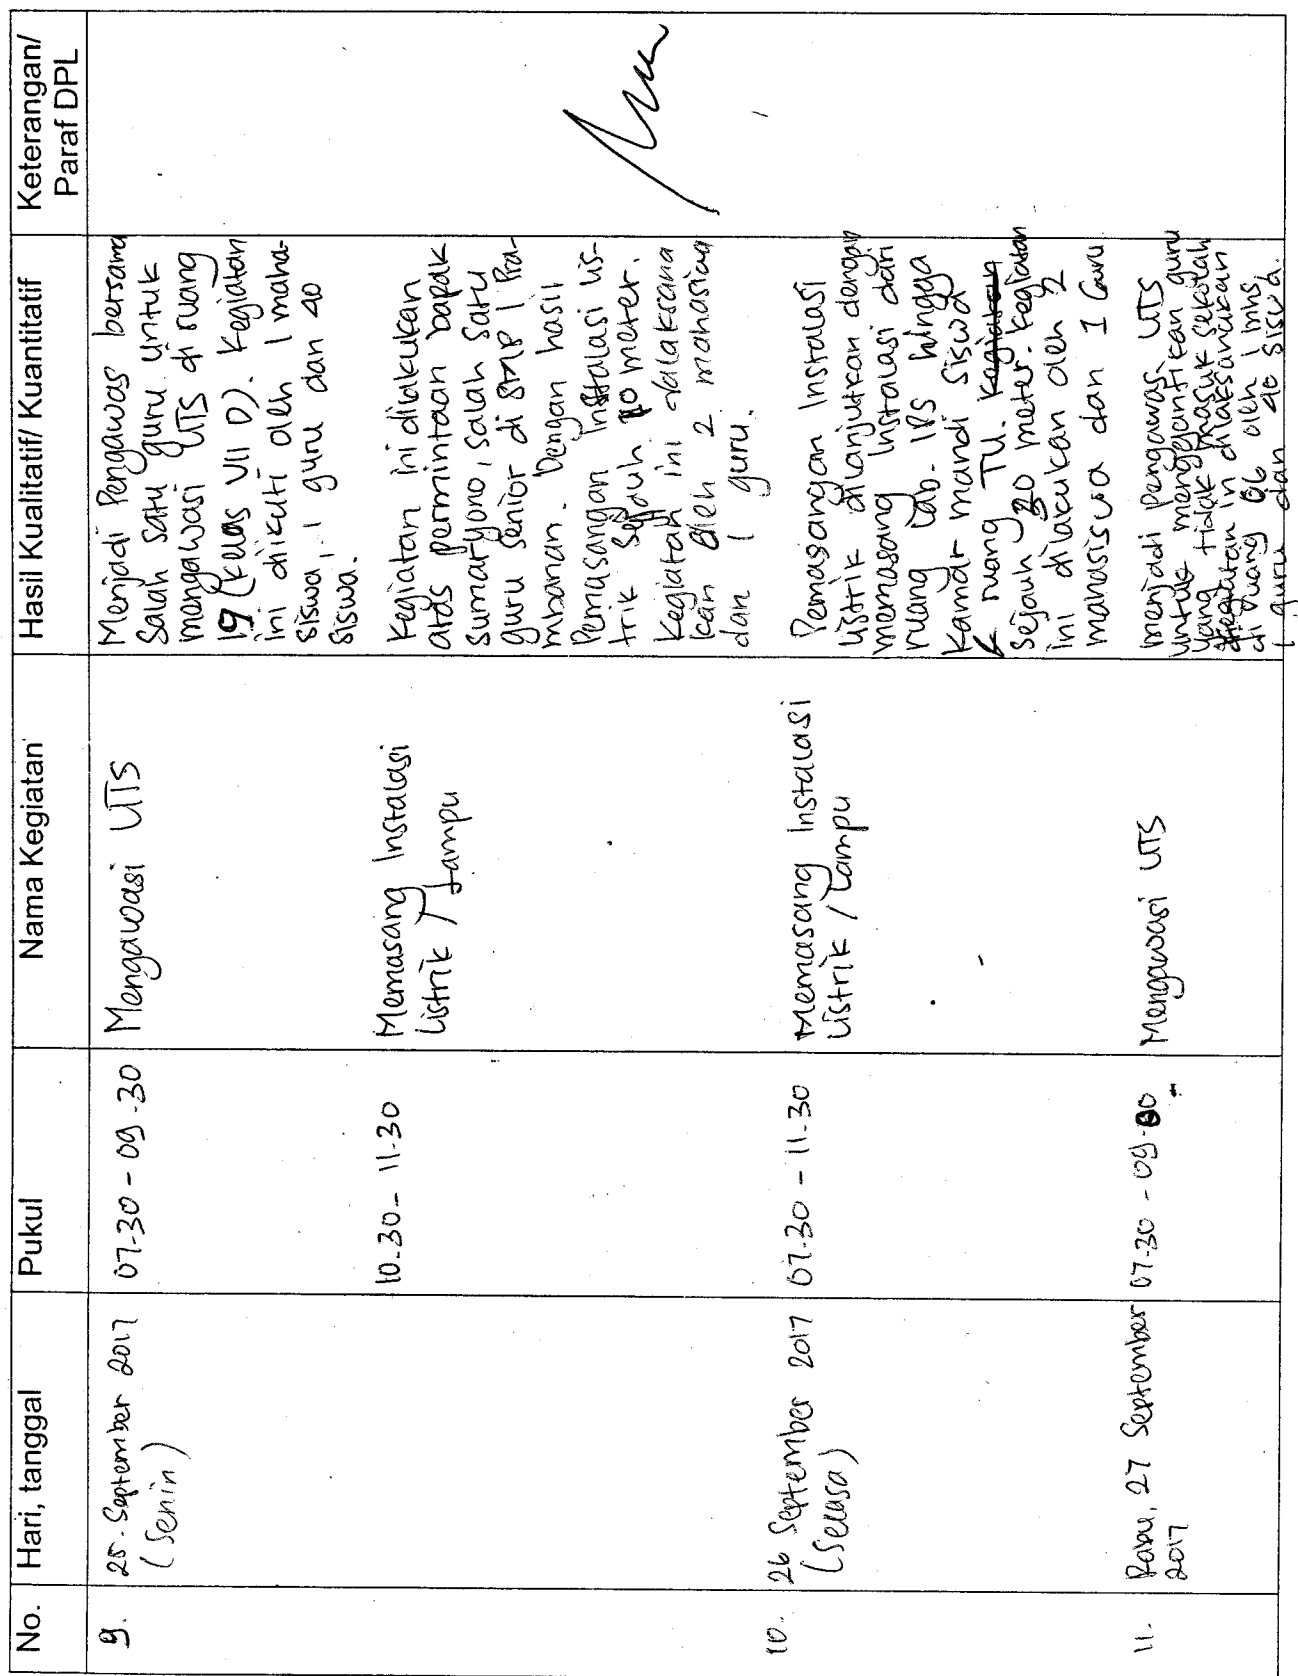 No.
Hari, tanggal
Pukul
Nama Kegiatan
Hasil Kualitatif/ Kuantitatif
Keterangan/
Paraf DPL
9.
25 September 2017
(Senin)
07.30 - 09.30
Mengawasi UTS
Menjadi Pengawas bersama
Salah satu guru untuk
mengawasi UTS di ruang
19 (Kelas VII D). Kegiatan
ini diikuti oleh 1 maha-
siswa, 1 guru dan 40
siswa.
10.30 - 11.30
Memasang Instalasi
Listrik / Lampu
Kegiatan ini dilakukan
atas permintaan bapak
sumaryono, salah satu
guru senior di SMP 1 Pra-
mbanan. Dengan hasil
Pemasangan Instalasi lis-
trik sejauh 10 meter.
Kegiatan ini dilaksana
kan oleh 2 mahasiswa
dan 1 guru.
10.
26 September 2017
(Selasa)
07.30 - 11.30
Memasang Instalasi
Listrik / Lampu
Pemasangan Instalasi
Listrik dilanjutkan dengan
memasang Instalasi dari
ruang Lab. IPS hingga
Kamar mandi siswa
& ruang TU. Kegiatan
sejauh 30 meter. Kegiatan
ini dilakukan oleh 2
mahasiswa dan 1 Guru
11.
Rabu, 27 September
2017
07.30 - 09.00
Mengawasi UTS
menjadi pengawas UTS
untuk menggantikan guru
yang tidak masuk sekolah
Kegiatan in dilaksanakan
di ruang 06 oleh 1 mhs
1 guru dan 40 siswa.